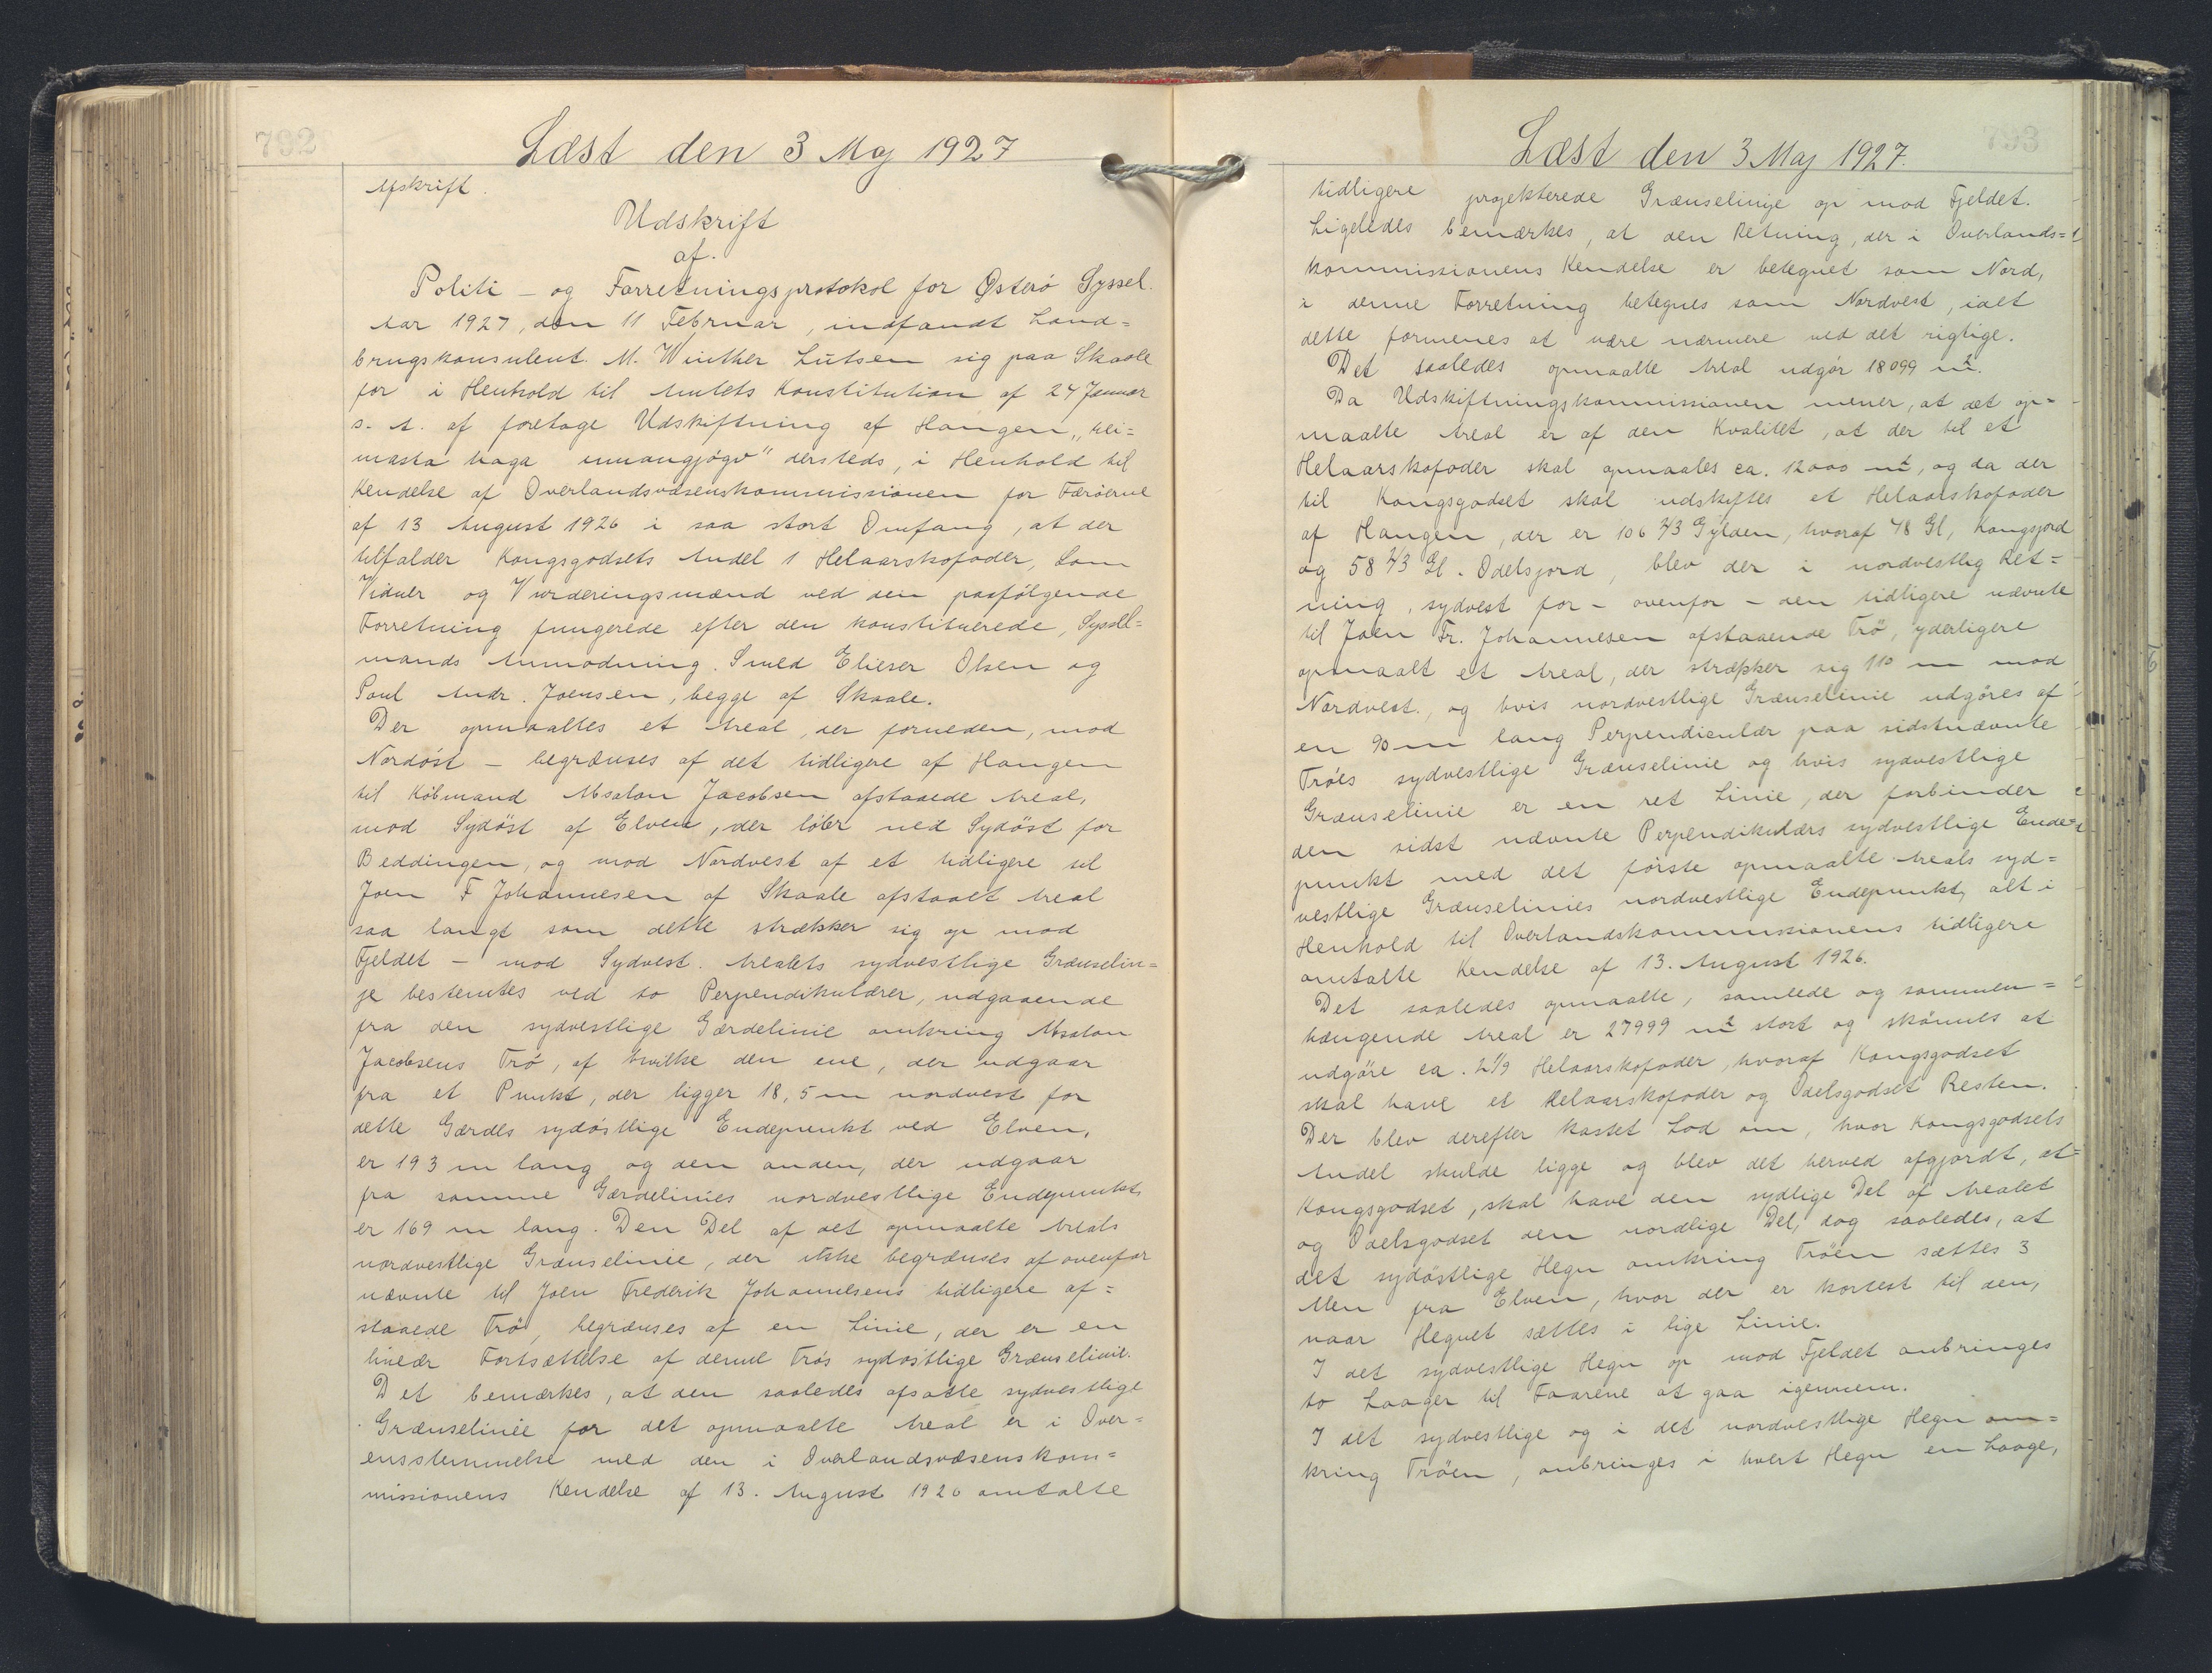 792
Læst den 3 Maj 1927
Afskrift.
Udskrift
af.
Politi - og Forretningsprotokol for Østerø Syssel.
Aar 1927, den 11 Februar, indfandt Land=
brugskonsulent M. Winther Lützen sig paa Skaale
for i Henhold til Amtets Konstitution af 24 Januar
s. A. at foretage Udskiftning af Haugen "hei=
masta haga innangjögv" dersteds, i Henhold til
Kendelse af Overlandsvæsenskommissionen for Færöerne
af 13 August 1926 i saa stort Omfang, at der
tilfalder Kongsgodsets Andel 1 Helaarskofoder, Som
Vidner og Vurderingsmænd ved den paafölgende
Forretning fungerede efter den konstituerede, Syssel=
mands Anmodning. Smed Elieser Olsen og
Poul Andr. Joensen, begge af Skaale.
Der opmaaltes et Areal, der forneden, mod
Nordöst - begrænses af det tidligere af Haugen
til Köbmand Absalon Jacobsen afstaaede Areal,
mod Sydöst af Elven, der löber ned Sydöst for
Beddingen, og mod Nordvest af et tidligere til
Joen F Johannesen af Skaale afstaaet Areal
saa langt som dette strækker sig op mod
Fjeldet - mod Sydvest. Arealets sydvestlige Grænselin=
je bestemtes ved to Perpendikulærer, udgaaende
fra den sydvestlige Gærdelinie omkring Absalon
Jacobsens Trö, af hvilke den ene, der udgaar
fra et Punkt, der ligger 18,5 m nordvest for
dette Gærdes sydöstlige Endepunkt ved Elven,
er 193 m lang og den anden, der udgaar
fra samme Gærdelinies nordvestlige Endepunkt,
er 169 m lang. Den Del af det opmaalte Areals
nordvestlige Grænselinie, der ikke begrænses af ovenfor
nævnte til Joen Frederik Johannesens tidligere af=
staaede Trö, begrænses af en Linie, der er en
lineær Fortsættelse af denne Trös sydöstlige Grænselinie.
Det bemærkes, at den saaledes afsatte sydvestlige
Grænselinie for det opmaalte Areal er i Over=
ensstemmelse med den i Overlandsvæsenskom=
missionens Kendelse af 13. August 1926 omtalte
793
Læst den 3 Maj 1927.
tidligere projekterede Grænselinje op mod Fjeldet.
Ligeledes bemærkes, at den Retning, der i Overlands=
kommissionens Kendelse er betegnet som Nord,
i denne Forretning betegnes som Nordvest, idet
dette formenes at være nærmere ved det rigtige.
Det saaledes opmaalte Areal udgör 18099 m².
Da Udskiftningskommissionen mener, at det op=
maalte Areal er af den Kvalitet, at der til et
Helaarskofoder skal opmaales ca. 12000 m², og da der
til Kongsgodset skal udskiftes et Helaarskofoder
af Haugen, der er 106 2/3 Gylden, hvoraf 48 Gl, Kongsjord
og 58 2/3 Gl. Odelsjord, blev der i nordvestlig Ret=
ning, sydvest for - ovenfor - den tidligere nævnte
til Joen Fr. Johannesen afstaaende Trö, yderligere
opmaalt et Areal, der strækker sig 110 m mod
Nordvest., og hvis nordvestlige Grænselinie udgöres af
en 90 m lang Perpendiculær paa sidstnævnte
Tröes sydvestlige Grænselinie og hvis sydvestlige
Grænselinie er en ret Linie, der forbinder
den sidst nævnte Perpendikulærs sydvestlige Ende=
punkt med det förste opmaalte Areals syd=
vestlige Grænselinies nordvestlige Endepunkt, alt i
Henhold til Overlandskommissionens tidligere
omtalte Kendelse af 13. August 1926.
Det saaledes opmaalte, samlede og sammen=
hængende Areal er 27999 m² stort og skönnes at
udgöre ca. 2 1/9 Helaarskofoder, hvoraf Kongsgodset
skal have et Helaarskofoder og Odelsgodset Resten.
Der blev derefter kastet Lod om, hvor Kongsgodsets
Andel skulde ligge og blev det herved afgjordt, at
Kongsgodset, skal have den sydlige Del af Arealet
og Odelsgodset den nordlige Del, dog saaledes, at
det sydöstlige Hegn omkring Tröen sættes 3
Alen fra Elven, hvor der er kortest til den,
naar Hegnet sættes i lige Linie.
I det sydvestlige Hegn op mod Fjeldet anbringes
to Laager til Faarene at gaa igennem.
I det sydvestlige og i det nordvestlige Hegn om=
kring Tröen, anbringes i hvert Hegn en Laage,